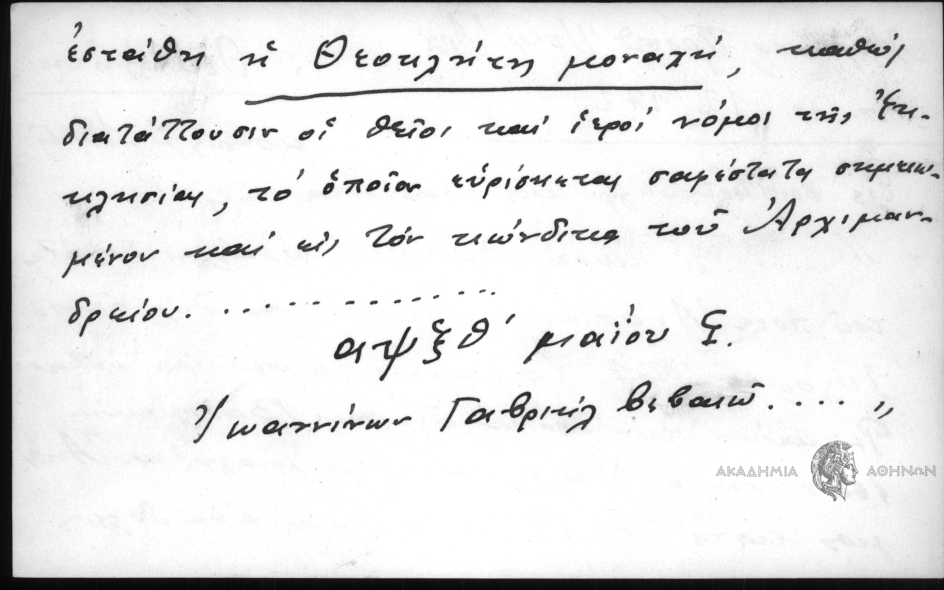 ἐστάθη ἡ Θεοκλήτη μοναχή, καθώς
διατάττουσιν οἱ θεῖοι καί ἱεροί νόμοι τῆς Ἐκ-
κλησίας, τό ὁποῖον εὑρίσκεται σαφέστατα σημειω-
μένον καί εἰς τόν κώνδικα τοῦ Ἀρχιμαν-
δρείου. . . . . . . . . . . . . . .
αψξθ΄ μαΐου
Ἰωαννίνων Γαβριήλ βεβαιῶ. . . . . „
ΑΚΑΔΗΜΙΑ ΑΘΗΝΩΝ